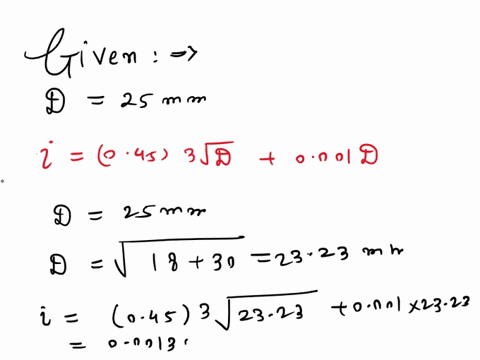 Given : ⇒
D = 25 mm
i = (0.45) 3√D + 0.001 D
D = 25 mm
D = √18 + 30 = 23.23 mm
i = (0.45) 3√23.23 + 0.001 × 23.23
= 0.0013